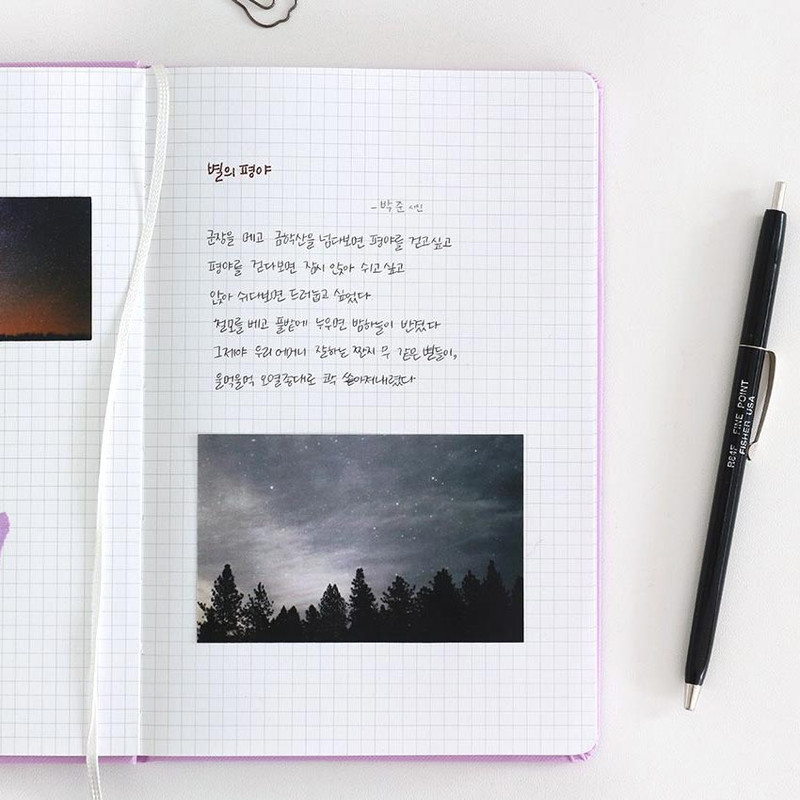 별의 평야
- 박준 시인
군장을 메고 금학산을 넘다보면 평야를 걷고싶고
평야를 걷다보면 잠시 앉아 쉬고싶고
앉아 쉬다보면 드러눕고 싶었다
철모를 베고 풀밭에 누우면 밤하늘이 반겼다
그제야 우리 어머니 잘하는 짠지 무 같은 별들이,
울먹울먹 오열종대로 콱 쏟아져내렸다
R84F FINE POINT
FISHER USA